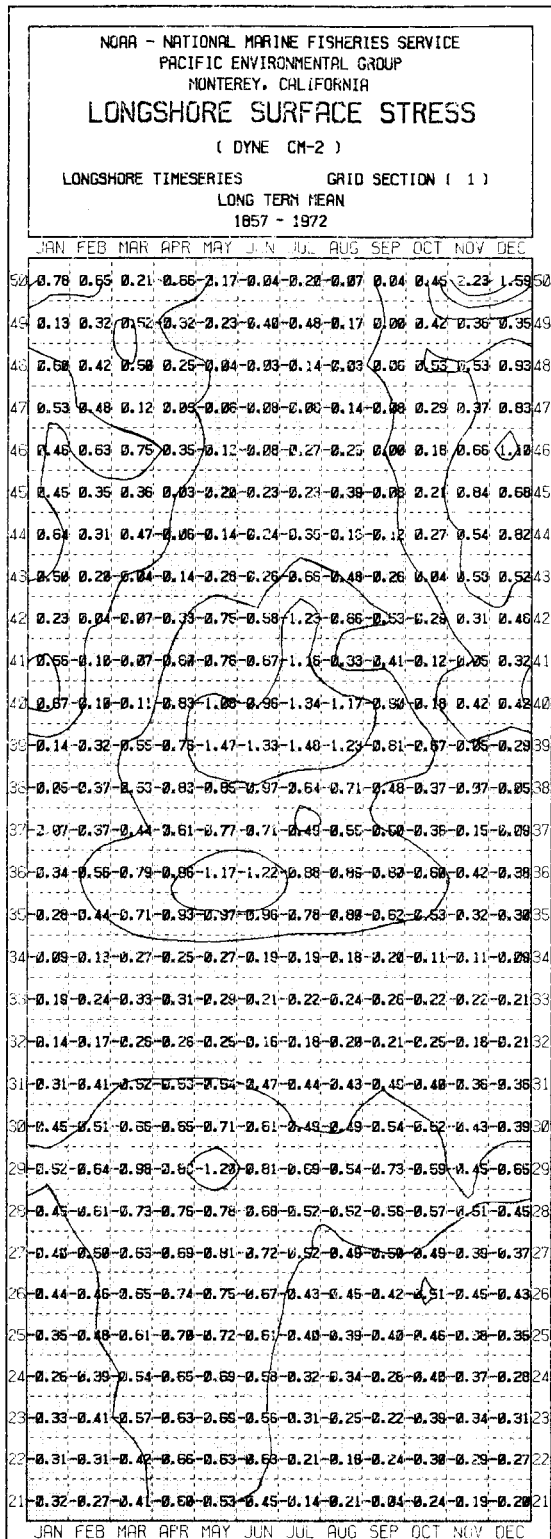 NOAA - NATIONAL MARINE FISHERIES SERVICE
PACIFIC ENVIRONMENTAL GROUP
MONTEREY, CALIFORNIA
LONGSHORE SURFACE STRESS
( DYNE CM-2 )
LONGSHORE TIMESERIES GRID SECTION ( 1 )
LONG TERM MEAN
1857 - 1972
JAN FEB MAR APR MAY JUN JUL AUG SEP OCT NOV DEC
50 0.78 0.65 0.21 -0.17 -0.04 -0.20 -0.07 0.04 0.45 2.23 1.59 50
49 0.13 0.32 0.52 0.32 -0.23 -0.40 -0.48 -0.17 0.00 0.42 0.36 0.35 49
48 0.60 0.42 0.50 0.25 -0.04 -0.03 -0.14 -0.03 0.06 0.53 0.53 0.93 48
47 0.53 0.48 0.12 0.09 -0.06 -0.08 -0.14 -0.08 0.29 0.37 0.83 47
46 0.46 0.63 0.75 0.35 -0.12 -0.08 -0.27 -0.25 0.00 0.18 0.66 1.10 46
45 0.45 0.35 0.36 0.03 -0.20 -0.23 -0.23 -0.39 -0.08 0.21 0.84 0.68 45
44 0.64 0.31 0.47 -0.14 -0.24 -0.35 -0.12 0.27 0.54 0.82 44
43 0.50 0.20 -0.14 -0.28 -0.26 -0.66 -0.48 -0.26 0.04 0.53 0.52 43
42 0.23 0.04 -0.07 -0.33 -0.75 -0.58 -1.23 -0.66 -0.53 -0.29 0.31 0.46 42
41 0.56 -0.07 -0.76 -0.67 -1.16 -0.33 -0.41 -0.12 0.32 41
40 0.67 -0.11 -0.83 -1.08 -0.96 -1.34 -1.17 -0.90 -0.18 0.42 0.42 40
39 -0.14 -0.32 -0.55 -0.76 -1.47 -1.33 -1.40 -1.23 -0.81 -0.67 -0.05 -0.29 39
38 -0.05 -0.37 -0.53 -0.83 -0.85 -0.97 -0.64 -0.71 -0.48 -0.37 -0.05 38
37 -0.07 -0.37 -0.44 -0.61 -0.77 -0.71 -0.49 -0.55 -0.60 -0.36 -0.15 -0.09 37
36 -0.34 -0.56 -0.79 -0.96 -1.17 -1.22 -0.88 -0.86 -0.60 -0.42 -0.38 36
35 -0.28 -0.44 -0.71 -0.93 -0.97 -0.96 -0.78 -0.80 -0.62 -0.53 -0.32 -0.30 35
34 -0.09 -0.13 -0.27 -0.25 -0.27 -0.19 -0.19 -0.18 -0.20 -0.11 -0.11 -0.09 34
33 -0.19 -0.24 -0.33 -0.31 -0.29 -0.21 -0.22 -0.24 -0.26 -0.22 -0.22 -0.21 33
32 -0.14 -0.17 -0.26 -0.26 -0.25 -0.16 -0.18 -0.20 -0.21 -0.25 -0.18 -0.21 32
31 -0.31 -0.41 -0.52 -0.53 -0.54 -0.47 -0.44 -0.43 -0.49 -0.40 -0.36 -0.36 31
30 -0.45 -0.51 -0.66 -0.65 -0.71 -0.61 -0.49 -0.49 -0.54 -0.52 -0.43 -0.39 30
29 -0.52 -0.64 -0.98 -1.20 -0.81 -0.69 -0.54 -0.73 -0.59 -0.45 -0.65 29
28 -0.45 -0.61 -0.73 -0.76 -0.78 -0.68 -0.52 -0.52 -0.56 -0.57 -0.51 -0.45 28
27 -0.40 -0.50 -0.63 -0.69 -0.81 -0.72 -0.52 -0.49 -0.50 -0.49 -0.39 -0.37 27
26 -0.44 -0.46 -0.65 -0.74 -0.75 -0.67 -0.43 -0.45 -0.42 -0.51 -0.45 -0.43 26
25 -0.35 -0.48 -0.61 -0.70 -0.72 -0.61 -0.40 -0.39 -0.40 -0.46 -0.38 -0.35 25
24 -0.26 -0.39 -0.54 -0.65 -0.69 -0.58 -0.32 -0.34 -0.26 -0.40 -0.37 -0.28 24
23 -0.33 -0.41 -0.57 -0.63 -0.66 -0.56 -0.31 -0.25 -0.22 -0.39 -0.34 -0.31 23
22 -0.31 -0.31 -0.42 -0.66 -0.63 -0.63 -0.21 -0.18 -0.24 -0.30 -0.29 -0.27 22
21 -0.32 -0.27 -0.41 -0.60 -0.53 -0.45 -0.14 -0.21 -0.04 -0.24 -0.19 -0.20 21
JAN FEB MAR APR MAY JUN JUL AUG SEP OCT NOV DEC